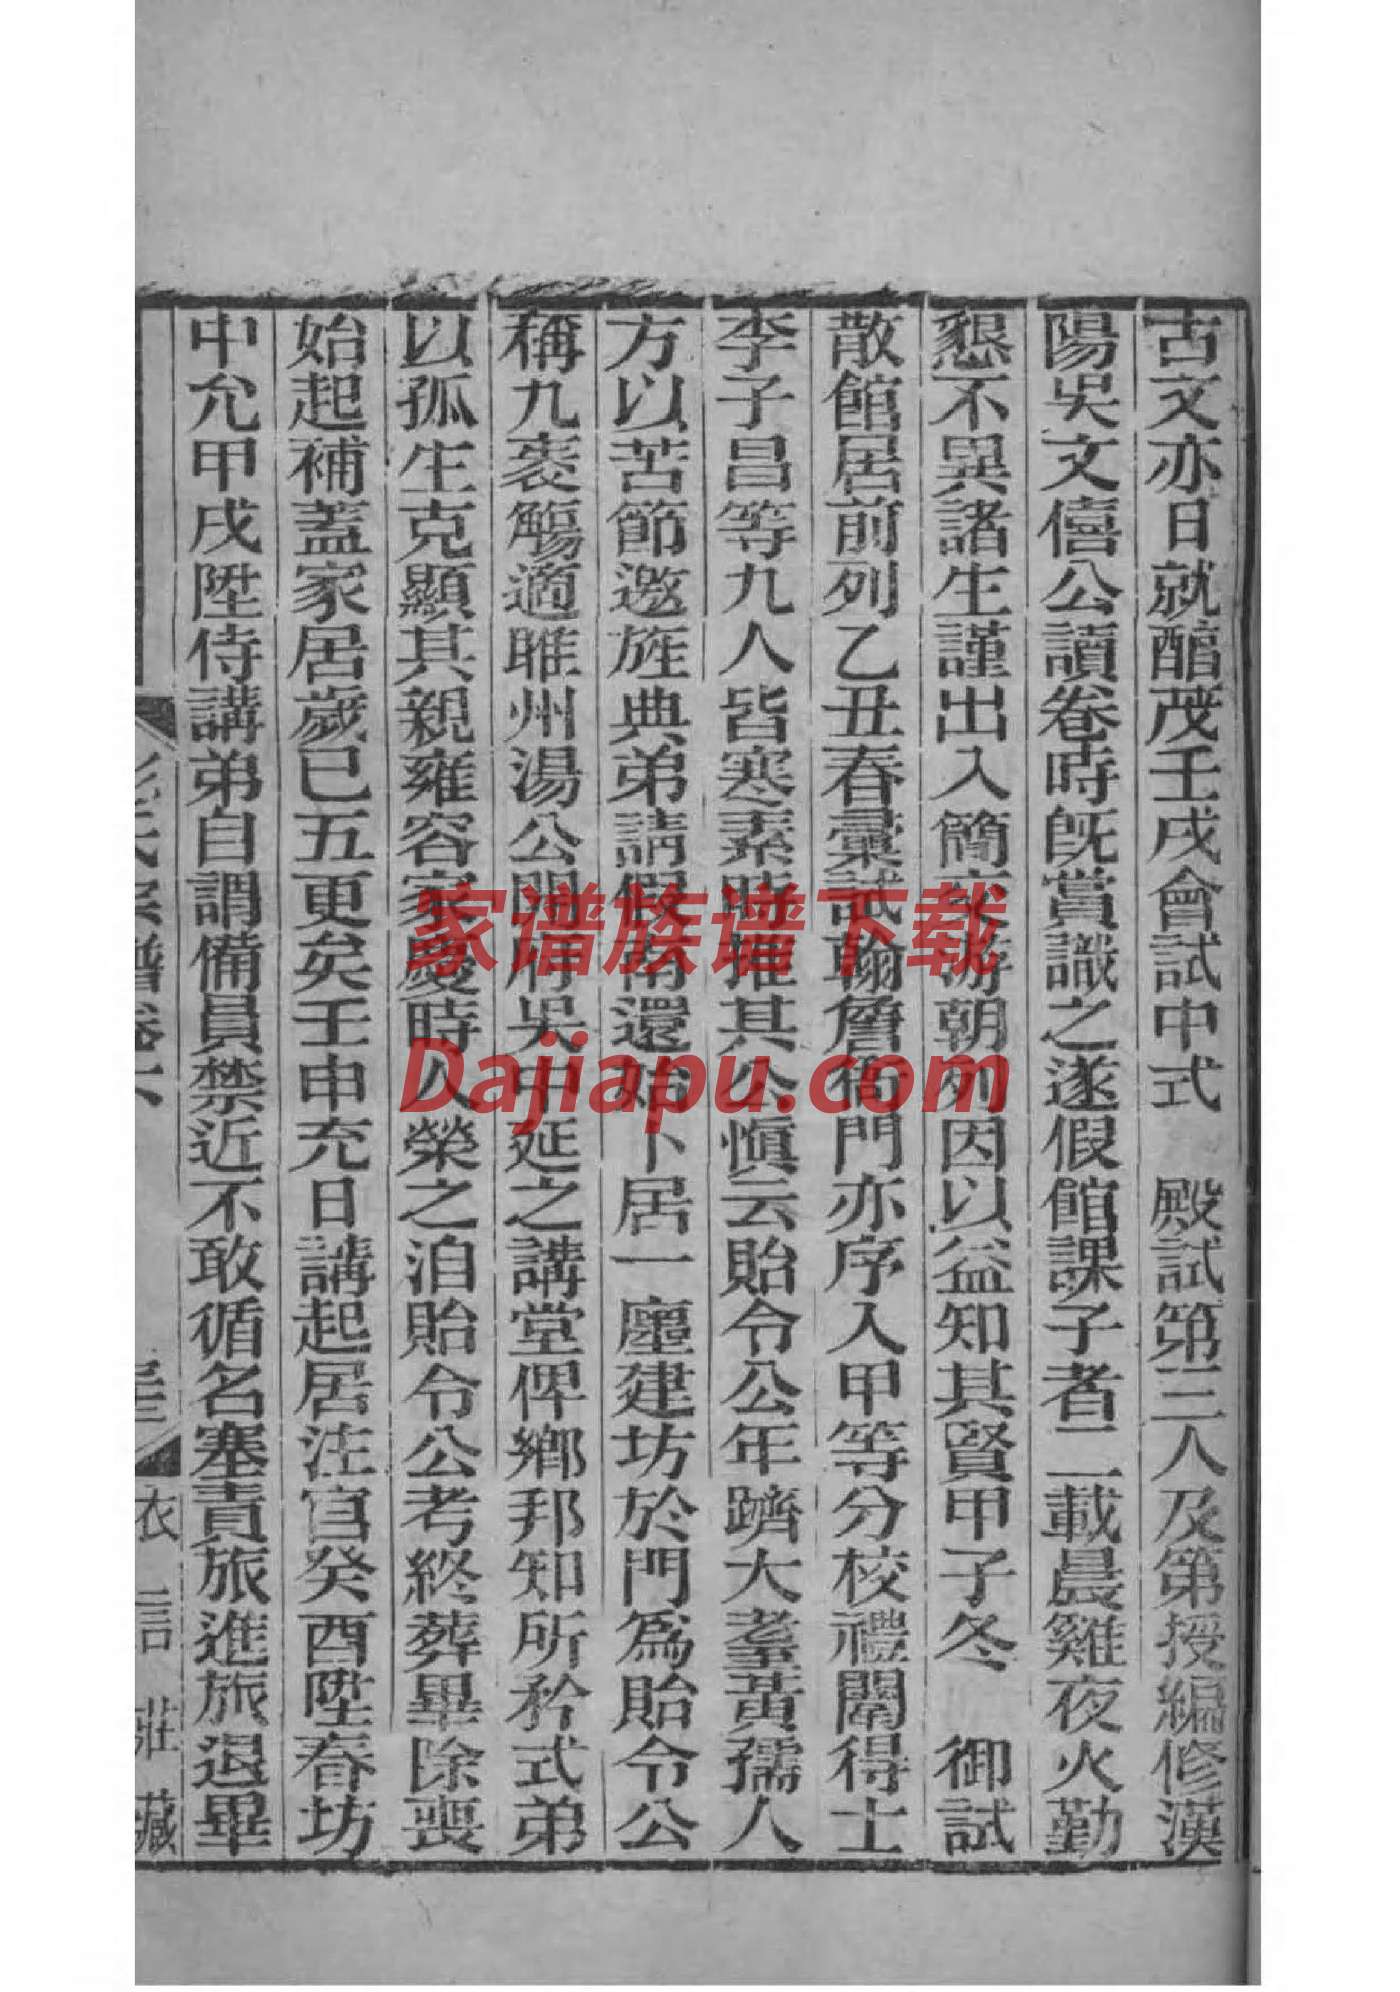 古文亦日就醕茂壬戌會試中式　殿試第三人及第授編修漢
陽吳文僖公讀卷時旣賞識之遂假館課子者二載晨雞夜火勤
懇不異諸生謹出入簡交游朝列因以益知其賢甲子冬　御試
散館居前列乙丑春彙試翰詹衙門亦序入甲等分校禮闈得士
李子昌等九人皆寒素時推其公愼云貽令公年躋大耋黃孺人
方以苦節邀旌典弟請假南還始卜居一廛建坊於門爲貽令公
稱九袠觴適睢州湯公開府吳中延之講堂俾鄉邦知所矜式弟
以孤生克顯其親雍容家慶時人榮之洎貽令公考終葬畢除喪
始起補蓋家居歲已五更矣壬申充日講起居注官癸酉陞春坊
中允甲戌陞侍講弟自謂備員禁近不敢循名塞責旅進旅退畢
氏宗譜卷六
衣言莊藏
家谱族谱下载
Dajiapu.com